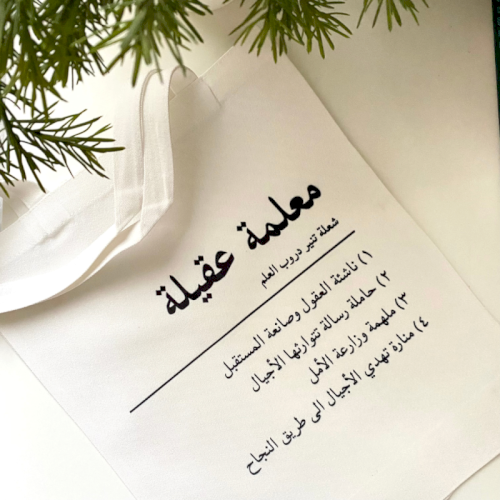 معلمة عقيلة
شعلة تنير دروب العلم
١) ناشئة العقول وصانعة المستقبل
٢) حاملة رسالة تتوارثها الأجيال
٣) ملهمة وزارعة الأمل
٤) منارة تهدي الأجيال الى طريق النجاح